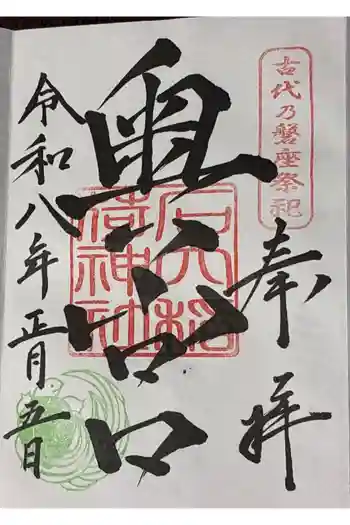 古代乃磐座祭祀
奉拝
奥宮
石穴稲
荷神社
令和八年正月五日